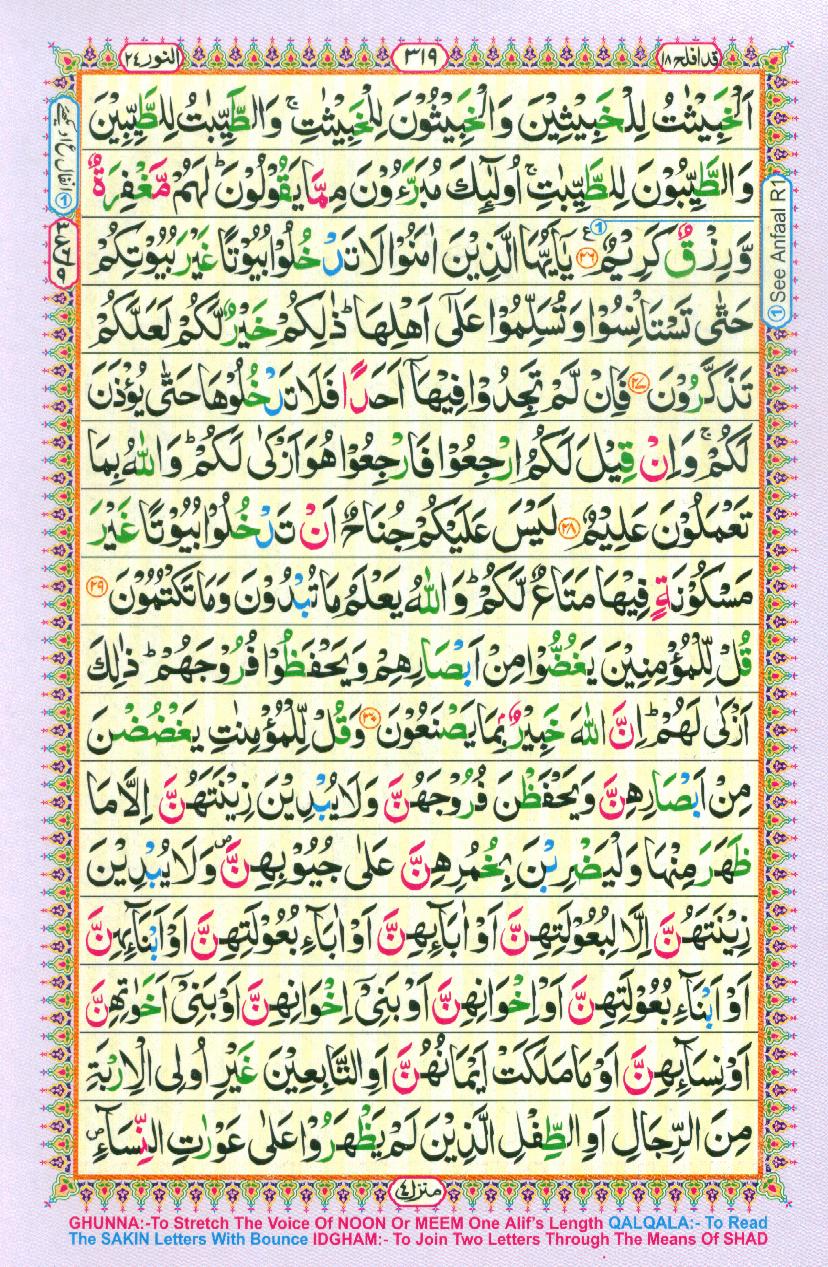 قد افلح ١٨
٣١٩
النور ٢٤
اَلْخَبِيْثٰتُ لِلْخَبِيْثِيْنَ وَالْخَبِيْثُوْنَ لِلْخَبِيْثٰتِ ۚ وَالطَّيِّبٰتُ لِلطَّيِّبِيْنَ
وَالطَّيِّبُوْنَ لِلطَّيِّبٰتِ ۚ اُولٰٓئِكَ مُبَرَّءُوْنَ مِمَّا يَقُوْلُوْنَ ؕ لَهُمْ مَّغْفِرَةٌ
وَّرِزْقٌ كَرِيْمٌ ﴿۲۶﴾ ع ① يٰۤاَيُّهَا الَّذِيْنَ اٰمَنُوْا لَا تَدْخُلُوْا بُيُوْتًا غَيْرَ بُيُوْتِكُمْ
حَتّٰى تَسْتَاْنِسُوْا وَتُسَلِّمُوْا عَلٰٓى اَهْلِهَا ؕ ذٰلِكُمْ خَيْرٌ لَّكُمْ لَعَلَّكُمْ
تَذَكَّرُوْنَ ﴿۲۷﴾ فَاِنْ لَّمْ تَجِدُوْا فِيْهَاۤ اَحَدًا فَلَا تَدْخُلُوْهَا حَتّٰى يُؤْذَنَ
لَكُمْ ۚ وَاِنْ قِيْلَ لَكُمُ ارْجِعُوْا فَارْجِعُوْا هُوَ اَزْكٰى لَكُمْ ؕ وَاللّٰهُ بِمَا
تَعْمَلُوْنَ عَلِيْمٌ ﴿۲۸﴾ لَيْسَ عَلَيْكُمْ جُنَاحٌ اَنْ تَدْخُلُوْا بُيُوْتًا غَيْرَ
مَسْكُوْنَةٍ فِيْهَا مَتَاعٌ لَّكُمْ ؕ وَاللّٰهُ يَعْلَمُ مَا تُبْدُوْنَ وَمَا تَكْتُمُوْنَ ﴿۲۹﴾
قُلْ لِّلْمُؤْمِنِيْنَ يَغُضُّوْا مِنْ اَبْصَارِهِمْ وَيَحْفَظُوْا فُرُوْجَهُمْ ؕ ذٰلِكَ
اَزْكٰى لَهُمْ ؕ اِنَّ اللّٰهَ خَبِيْرٌۢ بِمَا يَصْنَعُوْنَ ﴿۳۰﴾ وَقُلْ لِّلْمُؤْمِنٰتِ يَغْضُضْنَ
مِنْ اَبْصَارِهِنَّ وَيَحْفَظْنَ فُرُوْجَهُنَّ وَلَا يُبْدِيْنَ زِيْنَتَهُنَّ اِلَّا مَا
ظَهَرَ مِنْهَا وَلْيَضْرِبْنَ بِخُمُرِهِنَّ عَلٰى جُيُوْبِهِنَّ ۖ وَلَا يُبْدِيْنَ
زِيْنَتَهُنَّ اِلَّا لِبُعُوْلَتِهِنَّ اَوْ اٰبَآئِهِنَّ اَوْ اٰبَآءِ بُعُوْلَتِهِنَّ اَوْ اَبْنَآئِهِنَّ
اَوْ اَبْنَآءِ بُعُوْلَتِهِنَّ اَوْ اِخْوَانِهِنَّ اَوْ بَنِيْۤ اِخْوَانِهِنَّ اَوْ بَنِيْۤ اَخَوٰتِهِنَّ
اَوْ نِسَآئِهِنَّ اَوْ مَا مَلَكَتْ اَيْمَانُهُنَّ اَوِ التّٰبِعِيْنَ غَيْرِ اُولِي الْاِرْبَةِ
مِنَ الرِّجَالِ اَوِ الطِّفْلِ الَّذِيْنَ لَمْ يَظْهَرُوْا عَلٰى عَوْرٰتِ النِّسَآءِ ۖ
① See Anfaal R1
منزل ٤
GHUNNA:-To Stretch The Voice Of NOON Or MEEM One Alif's Length QALQALA:- To Read
The SAKIN Letters With Bounce IDGHAM:- To Join Two Letters Through The Means Of SHAD